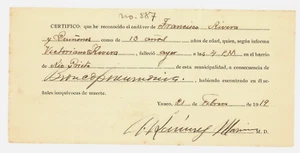 no. 587
CERTIFICO: que he reconocido el cadáver de Francisco Rivera
y Quiñones como de 13 años años de edad, quien, según informa
Victoriano Rivera, falleció ayer a las 4 P.M. en el barrio
de Rio Prieto de esta municipalidad, a consecuencia de
Bronco pneumonia, habiendo encontrado en él se-
ñales inequívocas de muerte.
Yauco, 21 de Febrero de 1919
M. D.